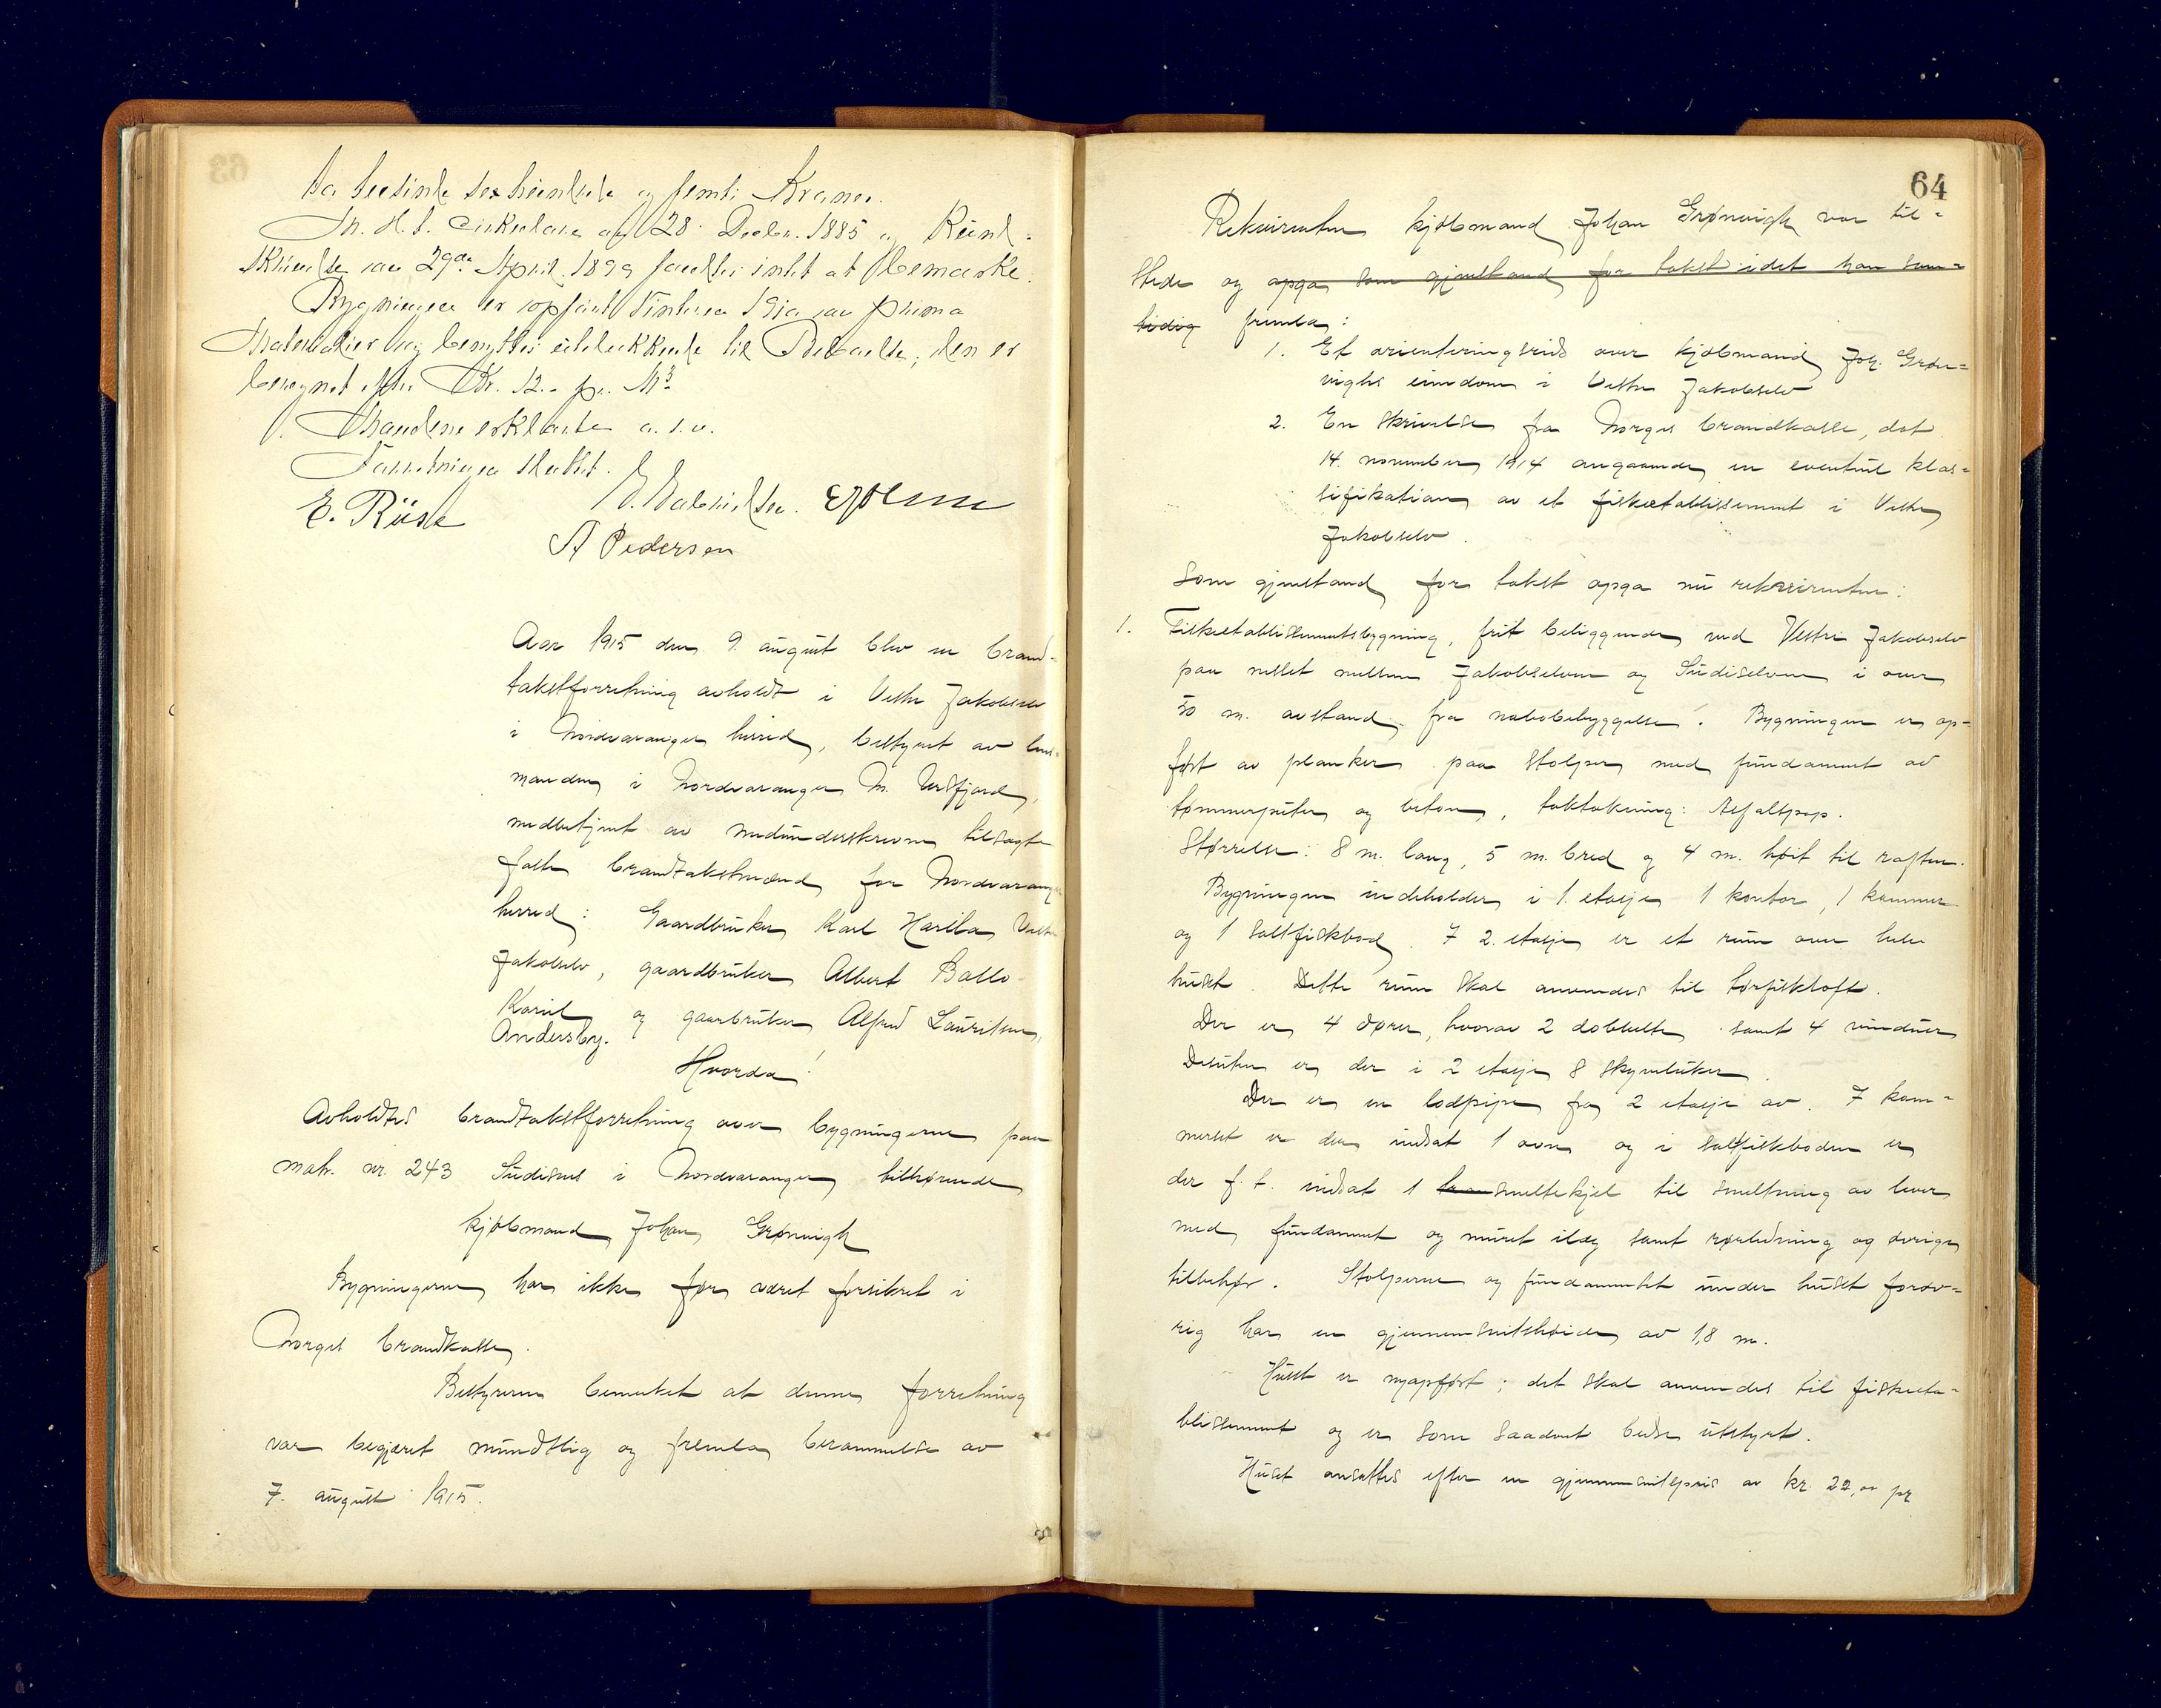 63
sex hundrede og femti Kroner.
Th. H. t. Cirkulære af 28. Decbr. 1885 og Rund-
skrivelse av 29de April 1899 fandtes intet at bemærke.
Bygningen er opført Vinteren 1912 av prima
Materialier og benyttes udelukkende til Beboelse, den er
beregnet efter Kr. 12.- pr. M³
Mændene erklærte a.s.v.
Forretningen sluttet.
E. Ruse
A Pedersen
Aar 1915 den 9. august blev en brand-
takstforretning avholdt i Vestre Jakobselv
i Nordvaranger herred, bestyret av lens-
manden i Nordvaranger M. Ursfjord,
medbetjent av medunderskrevne tilsagte
faste brandtakstmænd for Nordvaranger
herred: Gaardbruker Karl Harila Vestre
Jakobselv, gaardbruker Albert Ballo-
Kariel og gaarbruker Alfred Lauritsen,
Andersby.
Hvorda!
Avholdtes brandtakstforretning over bygningerne paa
matr. nr. 243 Sudisnes i Nordvaranger tilhørende
kjøbmand Johan Grønvigh
Bygningerne har ikke før været forsikret i
Norges brandkasse.
Bestyreren bemerket at denne forretning
var begjæret mundtlig og fremla berammelse av
7. august 1915.
64
Rekvirenten kjøbmand Johan Grønvigh var til=
stede og opga som gjenstand for takst idet han sam=
tidig fremla:
1. Et orienteringsrids over kjøbmand Joh. Grøn=
vighs eiendom i Vestre Jakobselv
2. En skrivelse fra Norges brandkasse, dat.
14. november 1914 angaaende en eventuel klas=
sifikation av et fisketablissement i Vestre
Jakobselv.
Som gjenstand for takst opga nu rekvirenten:
1. Fisketablissementsbygning, frit beliggende ved Vestre Jakobselv
paa nesset mellem Jakobselven og Sudiselven i over
50 m. avstand fra nabobebyggelse. Bygningen er op=
ført av planker paa stolper med fundament av
tømmerputer og beton, taktækning: Asfaltpap.
Størrelse: 8 m. lang, 5 m. bred og 4 m. høit til raften.
Bygningen indeholder i 1. etasje 1 kontor, 1 kammer
og 1 saltfiskbod. I 2. etasje er et rum over hele
huset. Dette rum skal anvendes til tørfiskloft.
Der er 4 dører, hvorav 2 dobbelte samt 4 vinduer
Desuten er der i 2 etasje 8 skyveluker.
Der er en lodpipe fra 2 etasje av. I kam=
merset er der indsat 1 ovn og i saltfiskboden er
der f.t. indsat 1 tran smeltekjel til smeltning av lever
med fundament og muret ildsg samt rørledning og øvrige
tilbehør. Stolperne og fundamentet under huset forøv=
rig har en gjennemsnitshøide av 1,8 m.
Huset er nyopført; det skal anvendes til fisketa=
blissement og er som saadant bedre utstyrt.
Huset ansettes efter en gjennemsnitspris av kr. 22,00 pr